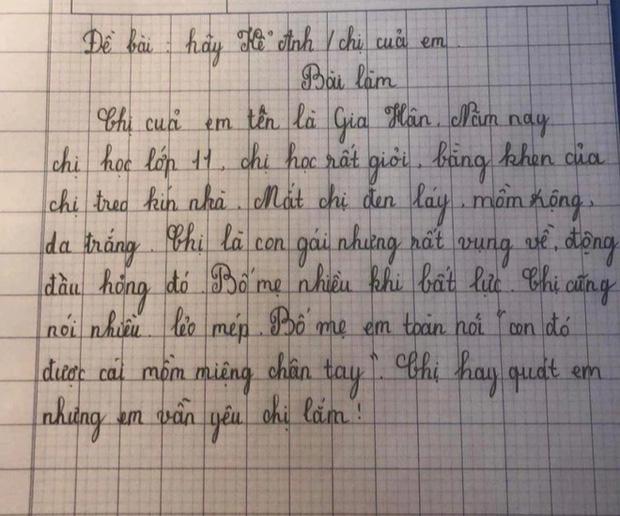 Đề bài : hãy kể anh / chị cuả em
Bài làm
Chị cuả em tên là Gia Hân. Năm nay
chị học lớp 11, chị học rất giỏi, bằng khen của
chị treo kín nhà. Mắt chị đen láy, mồm rộng,
da trắng. Chị là con gái nhưng rất vụng về, động
đâu hỏng đó. Bố mẹ nhiều khi bất lực. Chị cũng
nói nhiều, lẻo mép. Bố mẹ em toàn nói "con đó
được cái mồm miệng chân tay". Chị hay quát em
nhưng em vẫn yêu chị lắm!